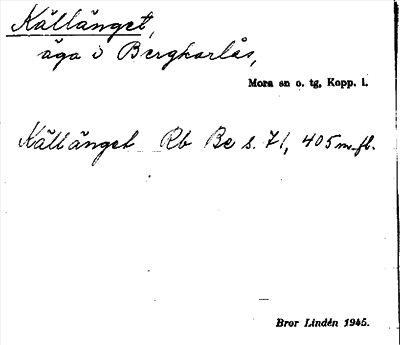 Källänget,
äga i Bergkarlås,
Mora sn o. tg, Kopp. l.
Källänget Rb Be s. 71, 405 m.fl.
Bror Lindén 1945.